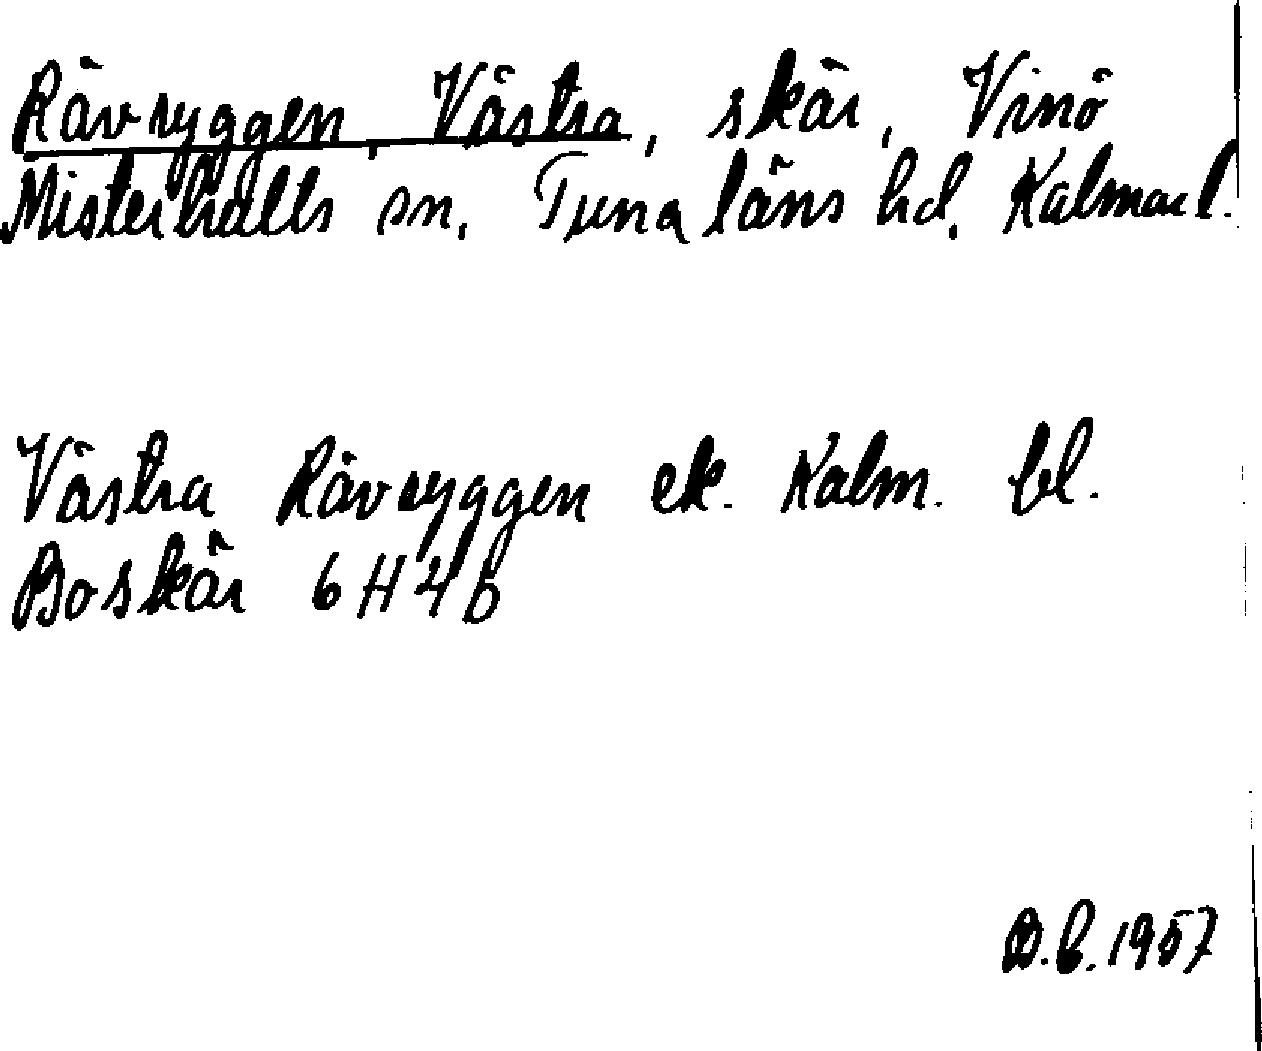 Rävryggen, Västra, skär, Vinö
Misterhults sn. Tuna läns hd. Kalmar l.
Västra Rävryggen ek. Kalm. bl.
Boskär 6H4b
D.b. 1957